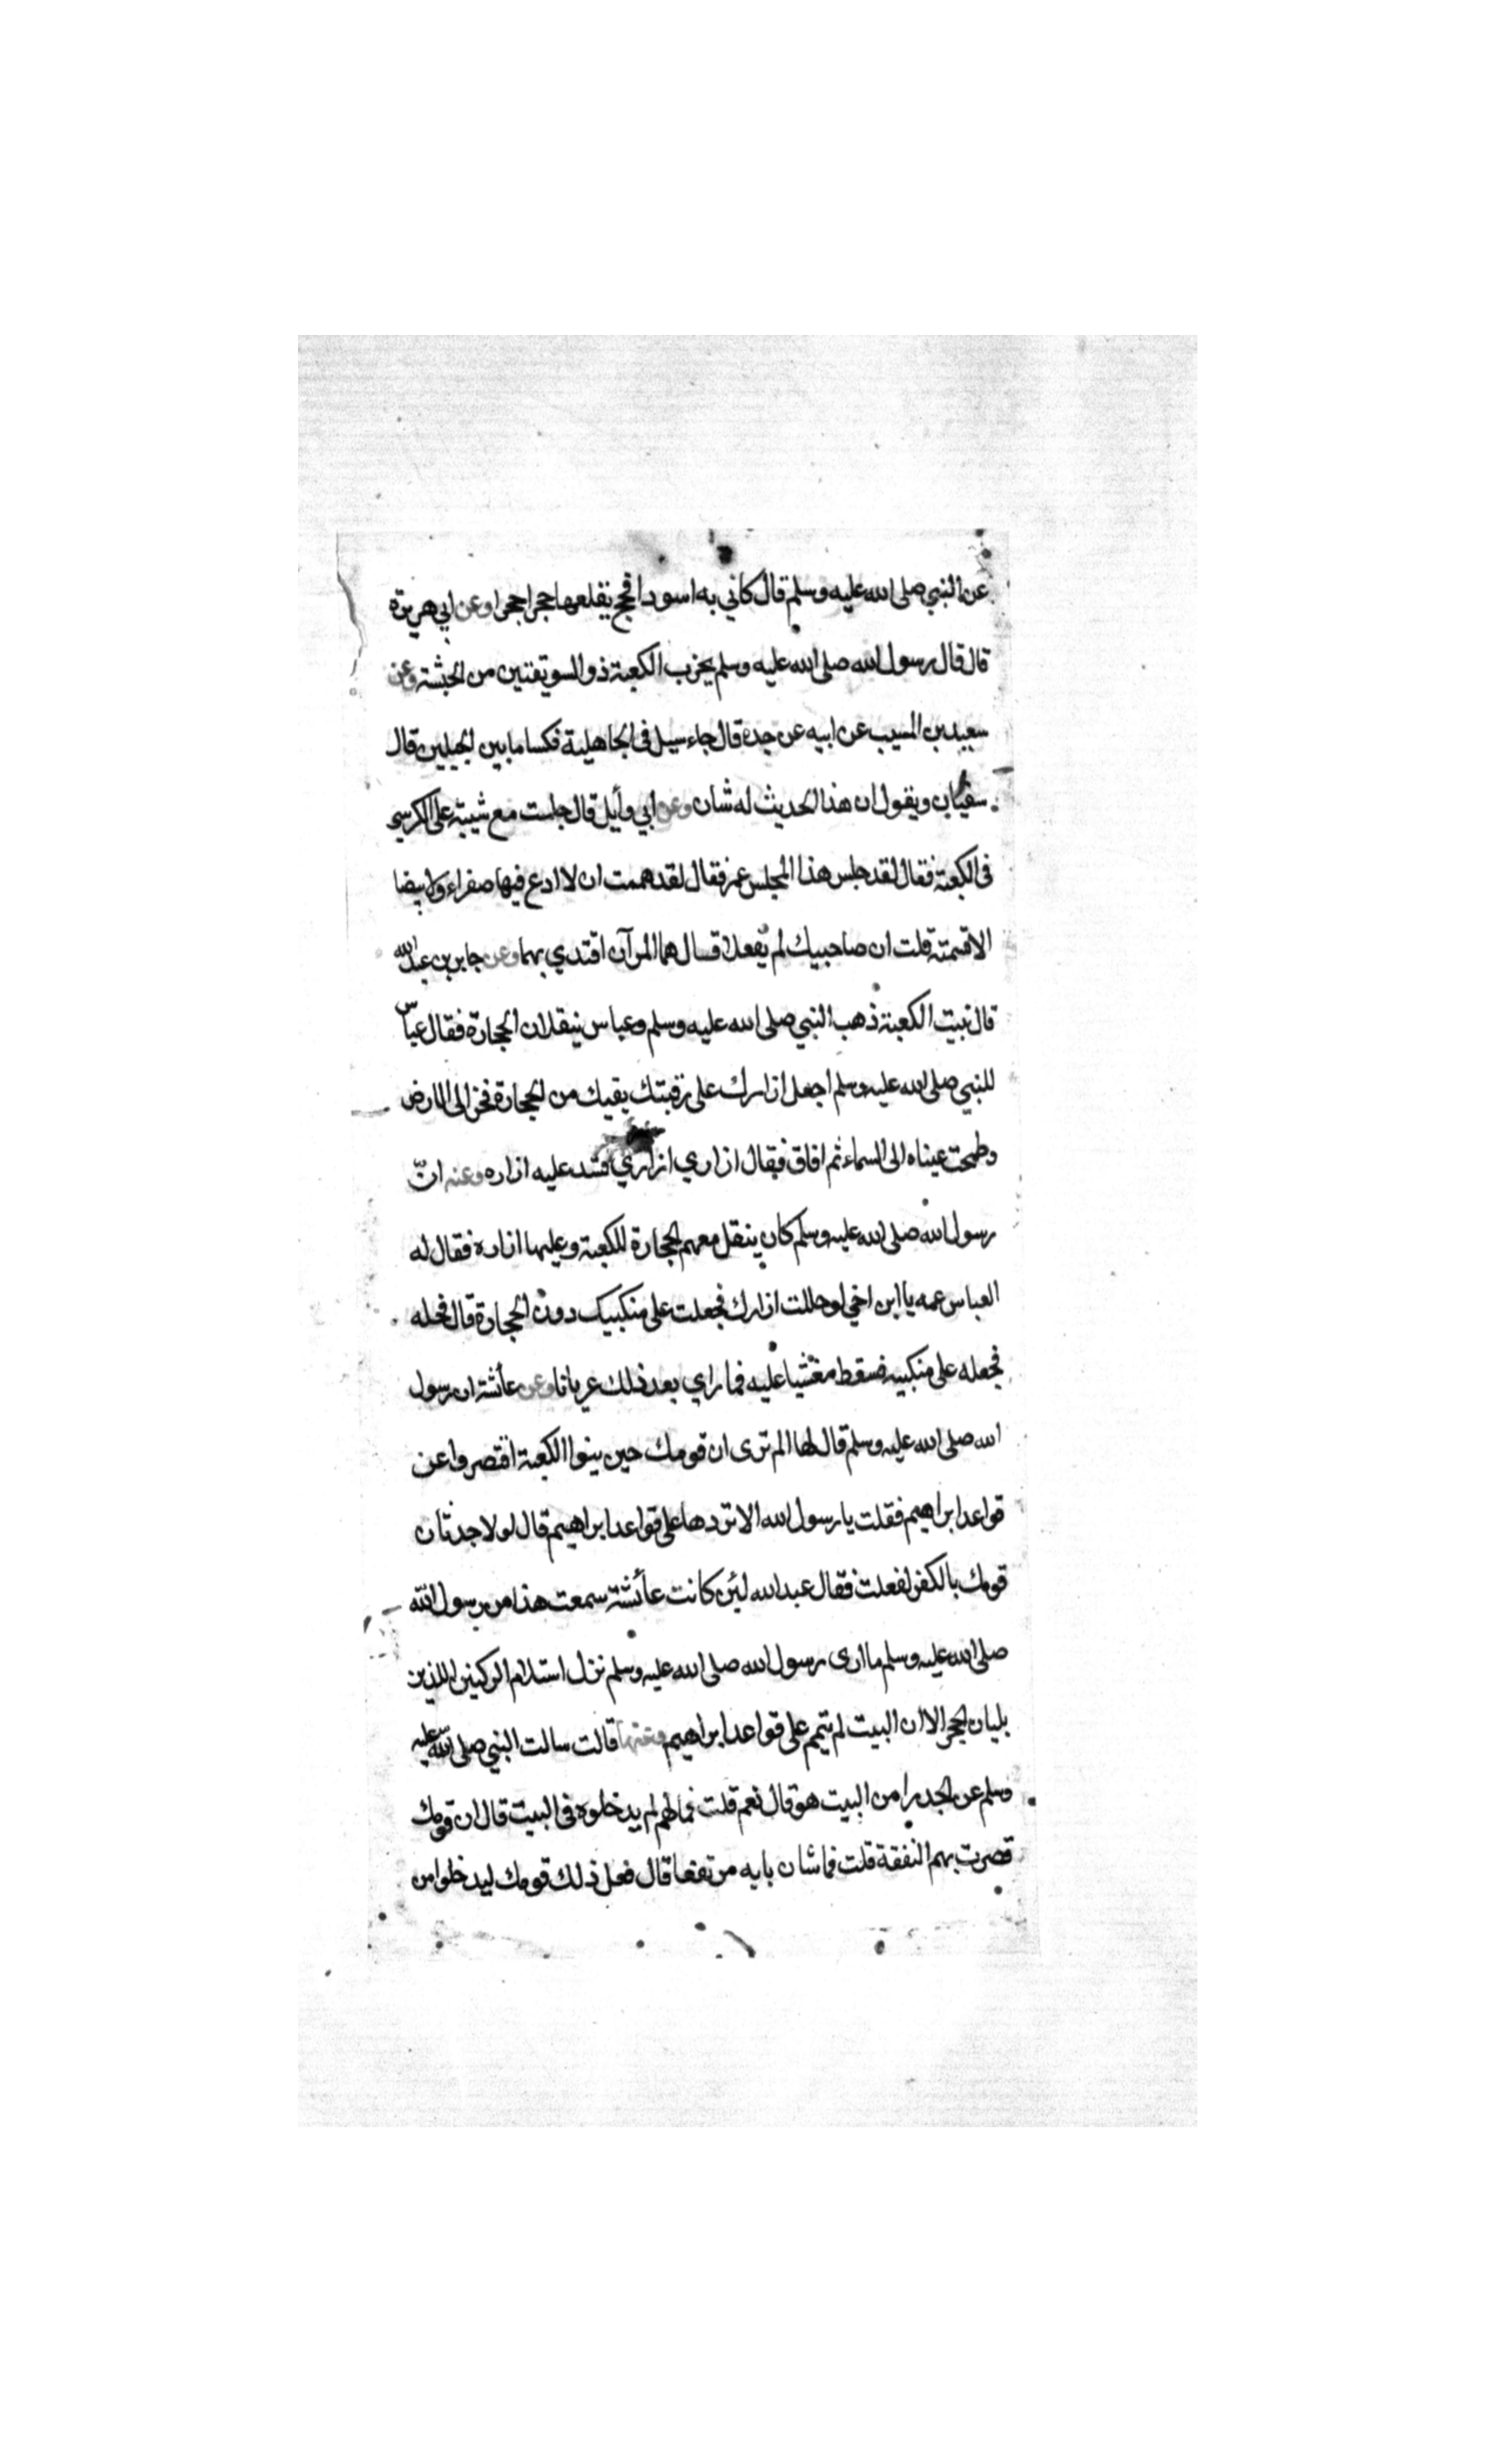 عن النبي صلى الله عليه وسلم قال كاني به اسود افحج يقلعها حجرا حجرا وعن ابي هريرة
قال قال رسول الله صلى الله عليه وسلم يخرب الكعبة ذو السويقتين من الحبشة وعن
سعيد بن المسيب عن ابيه عن جده قال جاء سيل في الجاهلية فكسا ما بين الجبلين قال
سفيان ويقول ان هذا الحديث له شان وعن ابي وأيل قال جلست مع شيبة على الكرسي
في الكعبة فقال لقد جلس هذا المجلس عمر فقال لقد هممت ان لا ادع فيها صفراء ولا بيضا
الا قسمته قلت ان صاحبيك لم يفعلا قال هما المرآن اقتدي بهما وعن جابر بن عبد الله
قال بنيت الكعبة ذهب النبي صلى الله عليه وسلم وعباس ينقلان الحجارة فقال عباس
للنبي صلى الله عليه وسلم اجعل ازارك على رقبتك يقيك من الحجارة فخر الى الارض
وطمحت عيناه الى السماء ثم افاق فقال ازاري ازاري فشد عليه ازاره وعنه انّ
رسول الله صلى الله عليه وسلم كان ينقل معهم الحجارة للكعبة وعليها ازاره فقال له
العباس عمه يا ابن اخي لو حللت ازارك فجعلت على منكبيك دون الحجارة قال فحله
فجعله على منكبيه فسقط مغشيا عليه فما راي بعد ذلك عريانا وعن عائشة ان رسول
الله صلى الله عليه وسلم قال لها الم ترى ان قومك حين بنوا الكعبة اقتصروا عن
قواعد ابراهيم فقلت يا رسول الله الا تردها على قواعد ابراهيم قال لولا حدثان
قومك بالكفر لفعلت فقال عبد الله لئن كانت عائشة سمعت هذا من رسول الله
صلى الله عليه وسلم ما ارى رسول الله صلى الله عليه وسلم ترك استلام الركنين اللذين
يليان الحجر الا ان البيت لم يتمم على قواعد ابراهيم وعنها قالت سالت النبي صلى الله عليه
وسلم عن الجدر امن البيت هو قال نعم قلت فما لهم لم يدخلوه في البيت قال ان قومك
قصرت بهم النفقة قلت فما شان بابه مرتفعا قال فعل ذلك قومك ليدخلوا من